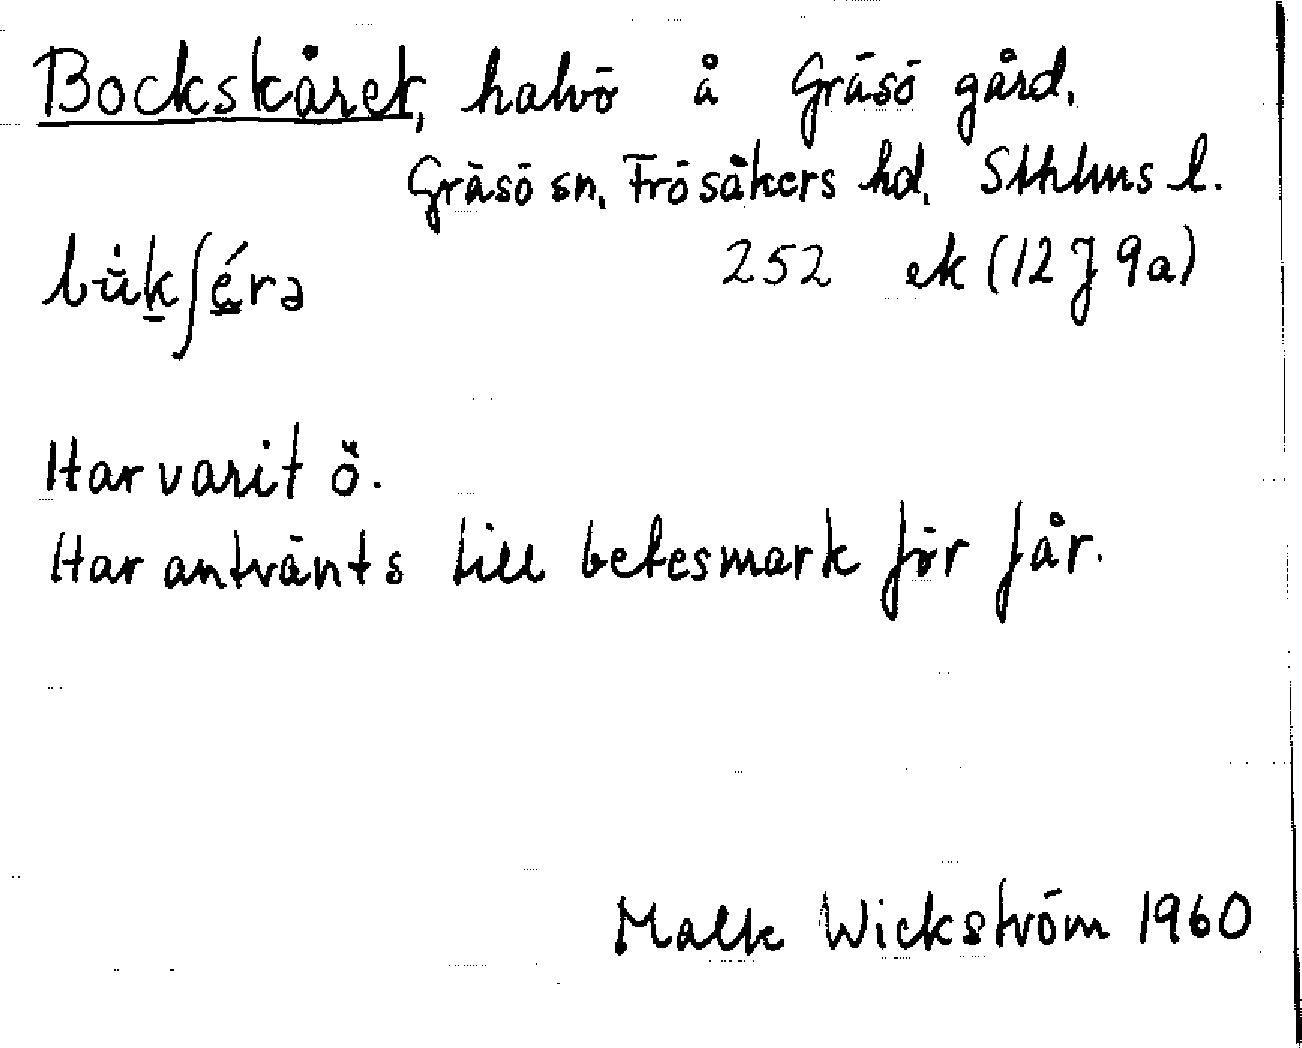 Bockskäret, halvö å Gräsö gård,
Gräsö sn, Frösåkers hd, Sthlms l.
bu̇kʃérə 252 ek (12 J 9a)
Har varit ö.
Har använts till betesmark för får.
Malte Wickström 1960